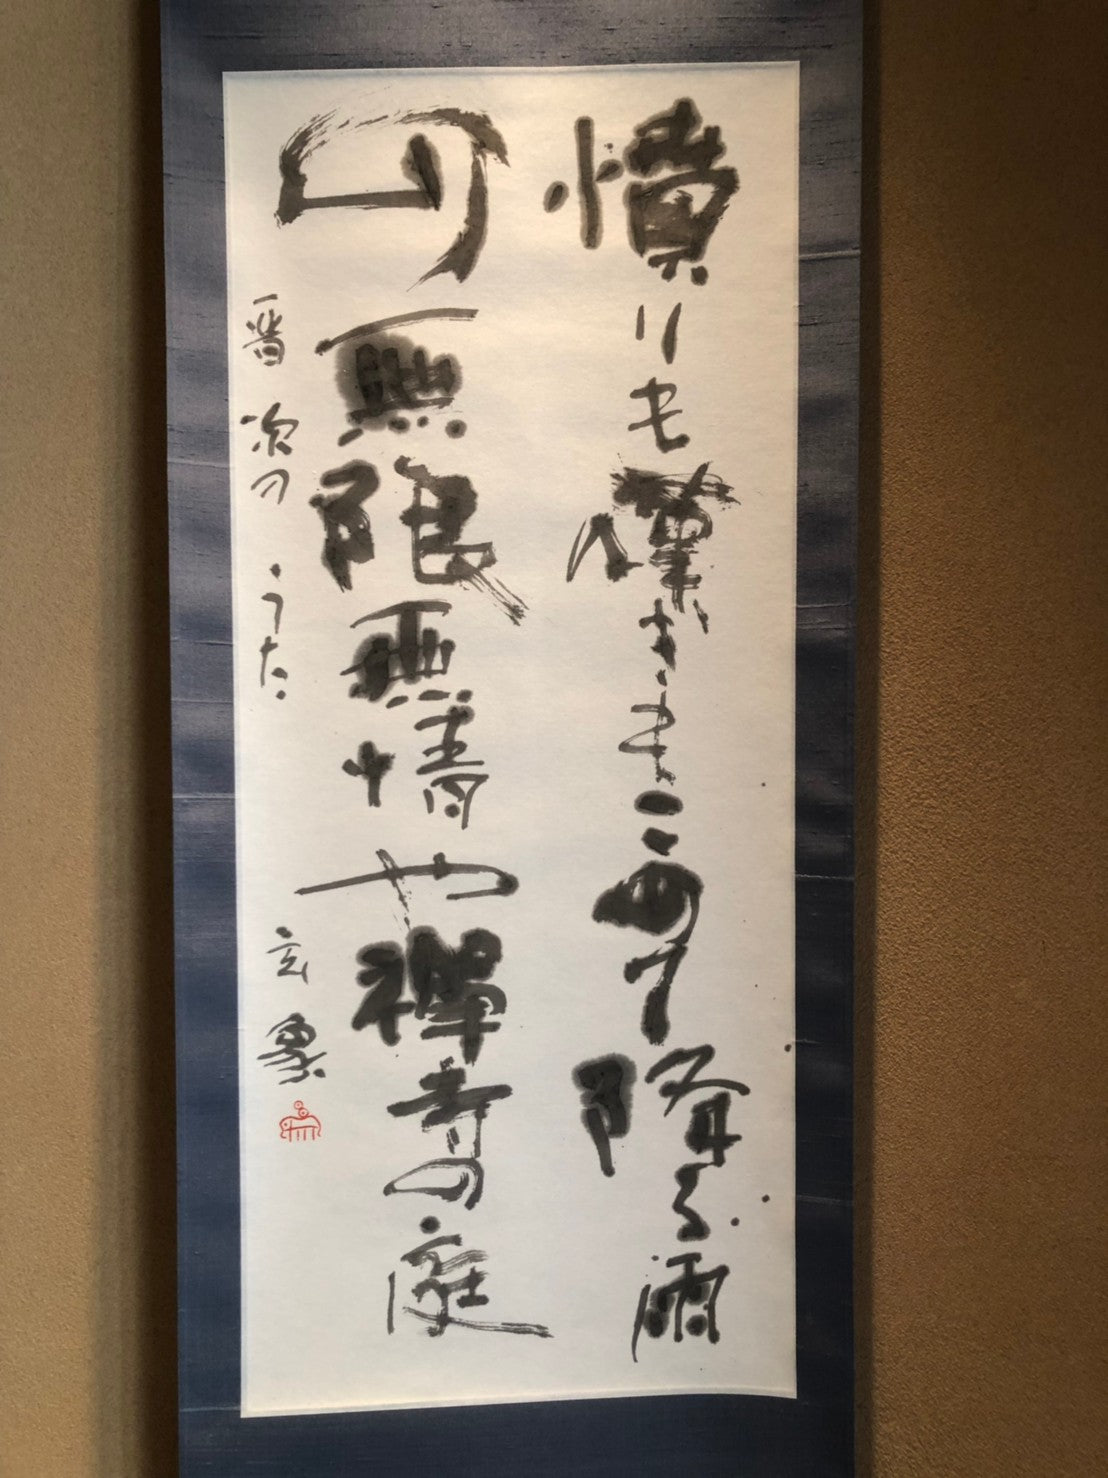 憤りも嘆きもこめて降る雨
の無限無情や禅寺の庭
晋次のうた 玄象